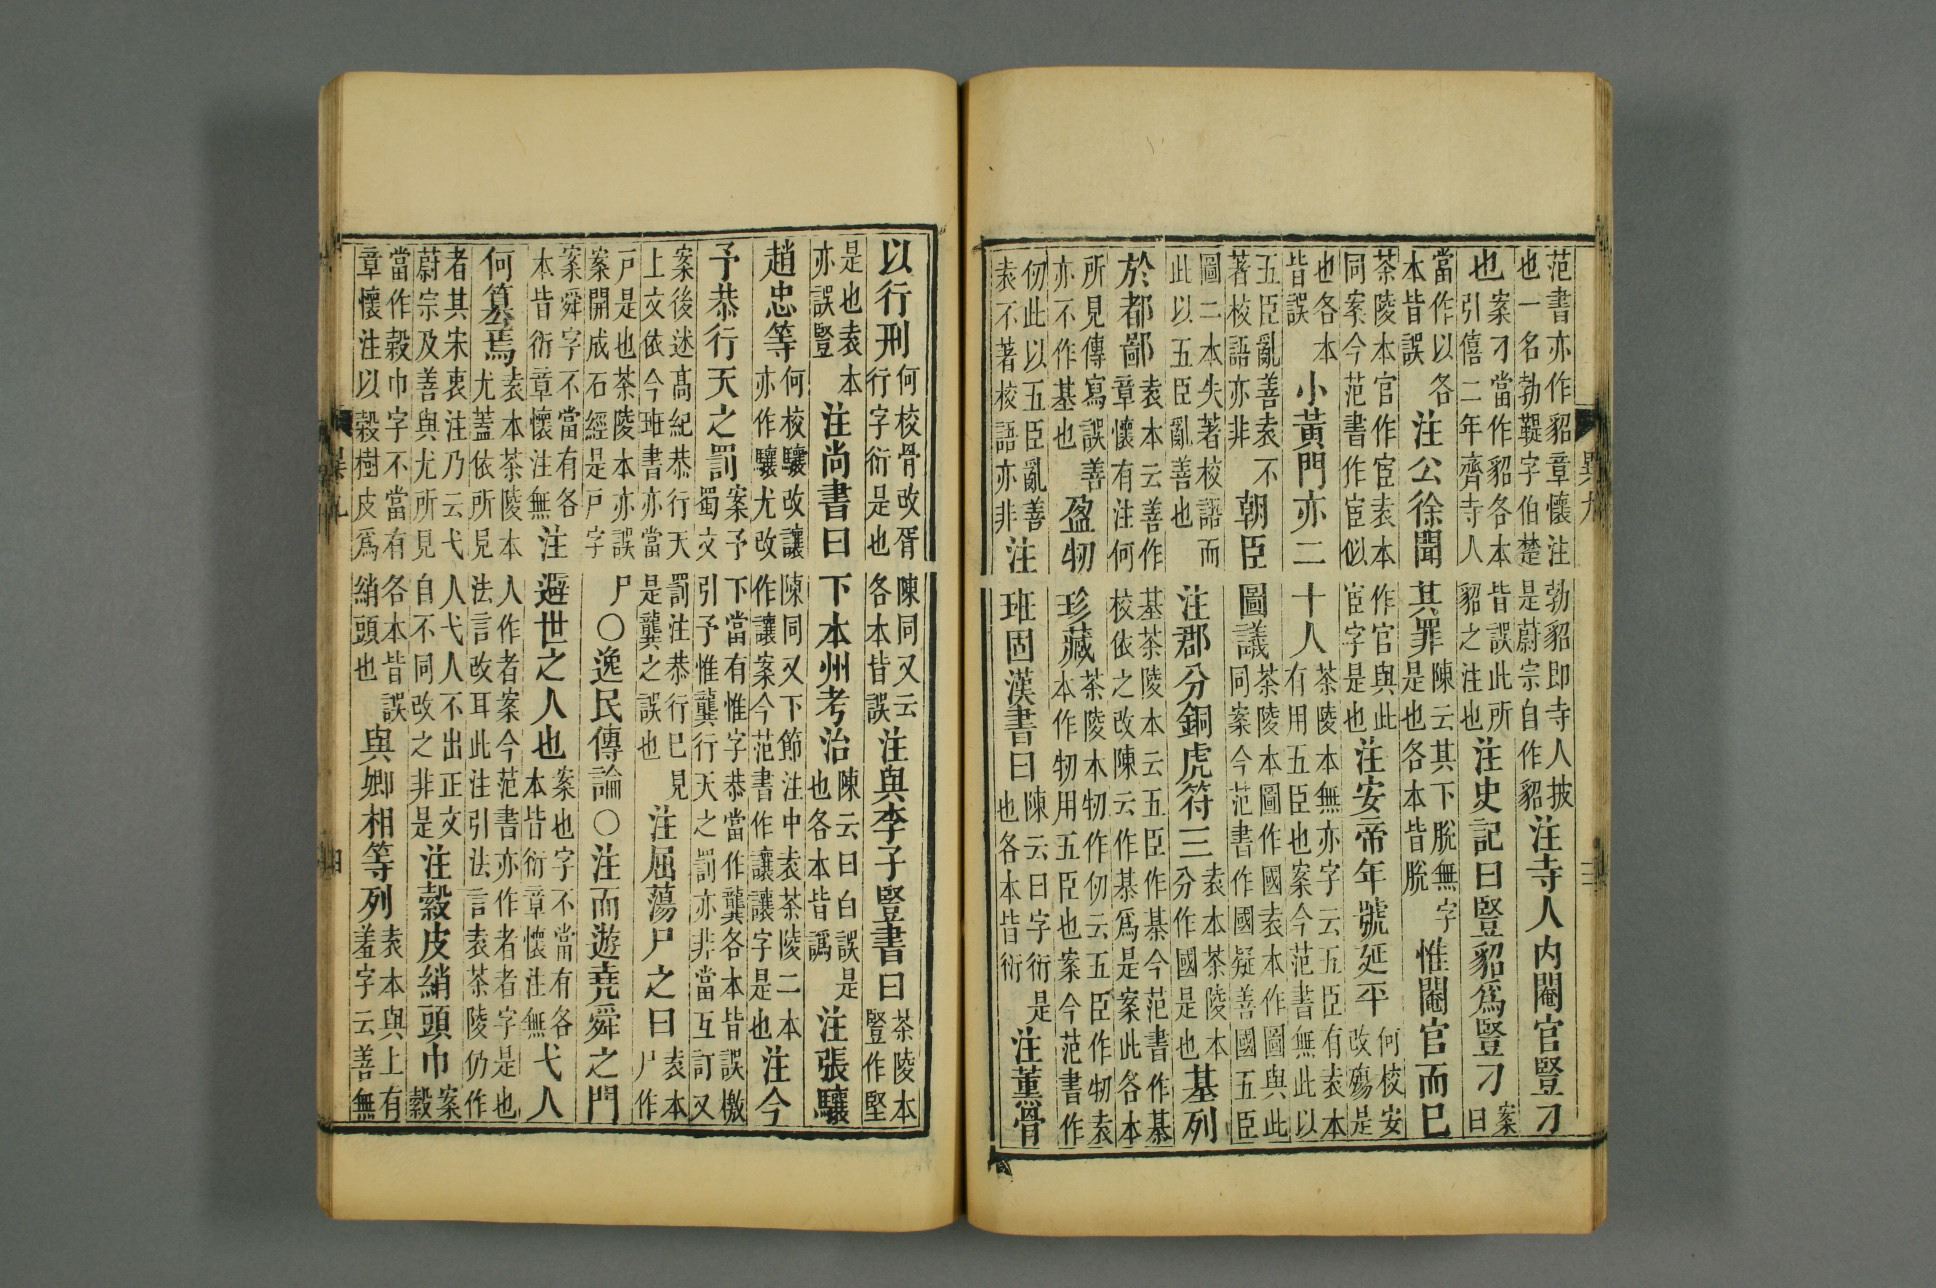 范書亦作貂章懷注勃貂即寺人披
也一名勃鞮字伯楚是蔚宗自作貂
注寺人内閹官豎刁
也
案刁當作貂各本皆誤此所
引僖二年齊寺人貂之注也
注史記曰豎貂爲豎刁
案
曰
當作以各
本皆誤
注公徐聞其罪
陳云其下脫無字
是也各本皆脫
惟閹官而已
茶陵本官作宦袁本作官與此
同案今范書作宦似宦字是也
注安帝年號延平
何校安
改殤是
也各本
皆誤
小黃門亦二十人
茶陵本無亦字云五臣有袁本
有用五臣也案今范書無此以
五臣亂善袁不
著校語亦非
朝臣圖議
茶陵本圖作國袁本作圖與此
同案今范書作國疑善國五臣
圖二本失著校語而
此以五臣亂善也
注郡分銅虎符三
袁本茶陵本
分作國是也
基列
於都鄙
袁本云善作基茶陵本云五臣作棊今范書作棊
章懷有注何校依之改陳云作棊爲是案此各本
所見傳寫誤善
亦不作基也
盈牣珍藏
茶陵本牣作仞云五臣作牣袁
本作牣用五臣也案今范書作
仞此以五臣亂善
袁不著校語亦非
注班固漢書曰
陳云曰字衍是
也各本皆衍
注薰骨
異九
以行刑
何校骨改胥陳同又云
行字衍是也各本皆誤
注與李子豎書曰
茶陵本
豎作堅
是也袁本
亦誤豎
注尚書曰下本州考治
陳云曰白誤是
也各本皆譌
注張驤
趙忠等
何校驤改讓陳同又下節注中袁茶陵二本
亦作驤尤改作讓案今范書作讓讓字是也
注今
予恭行天之罰
案予下當有惟字恭當作龔各本皆誤檄
蜀文引予惟龔行天之罰亦非當互訂又
案後述高紀恭行天罰注恭行已見
上文依今班書亦當是龔之誤也
注屈蕩尸之曰
袁本
尸作
戶是也茶陵本亦誤尸
案開成石經是戶字
○逸民傳論○注而遊堯舜之門
案舜字不當有各
本皆衍章懷注無
注遯世之人也
案也字不當有各
本皆衍章懷注無
弋人
何篡焉
袁本茶陵本人作者案今范書亦作者者字是也
尤蓋依所見法言改耳此注引法言袁茶陵仍作
者其宋衷注乃云弋人弋人不出正文
蔚宗及善與尤所見自不同改之非是
注縠皮綃頭巾
案
縠
當作榖巾字不當有各本皆誤
章懷注以榖樹皮爲綃頭也
與卿相等列
袁本與上有
羞字云善無